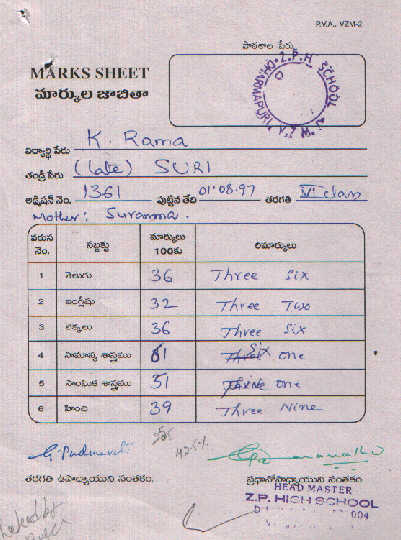 P.V.A., VZM-2
పాఠశాల పేరు
Z.P.H. SCHOOL
MARKS SHEET
మార్కుల జాబితా
విద్యార్థి పేరు K. Rama
తండ్రి పేరు (late) SURI
అడ్మిషన్ నెం. 1361 పుట్టిన తేది 01-08-97 తరగతి VI class
Mother: Suramma.
వరుస నెం. సబ్జక్టు మార్కులు 100కు రిమార్కులు
1 తెలుగు 36 Three Six
2 ఇంగ్లీషు 32 Three Two
3 లెక్కలు 36 Three Six
4 సామాన్య శాస్త్రము 61 Six One
5 సాంఘిక శాస్త్రము 51 One
6 హింది 39 Three Nine
255
42.5%
G. Padmavathi
తరగతి ఉపాధ్యాయుని సంతకం.
ప్రధానోపాధ్యాయుని సంతకం
HEAD MASTER
Z.P. HIGH SCHOOL
004